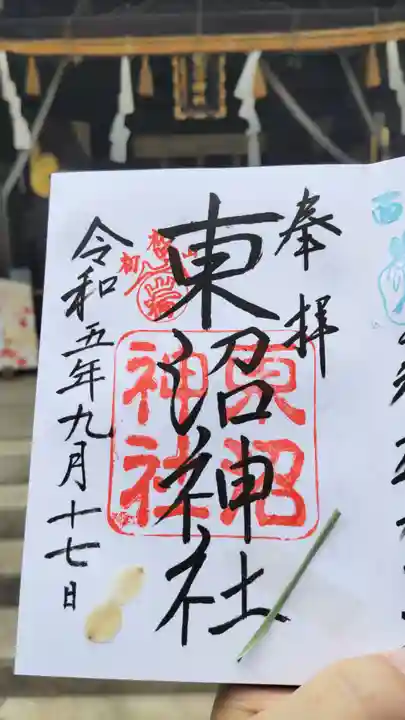 奉拝
東沼神社
東沼
神社
令和五年九月十七日